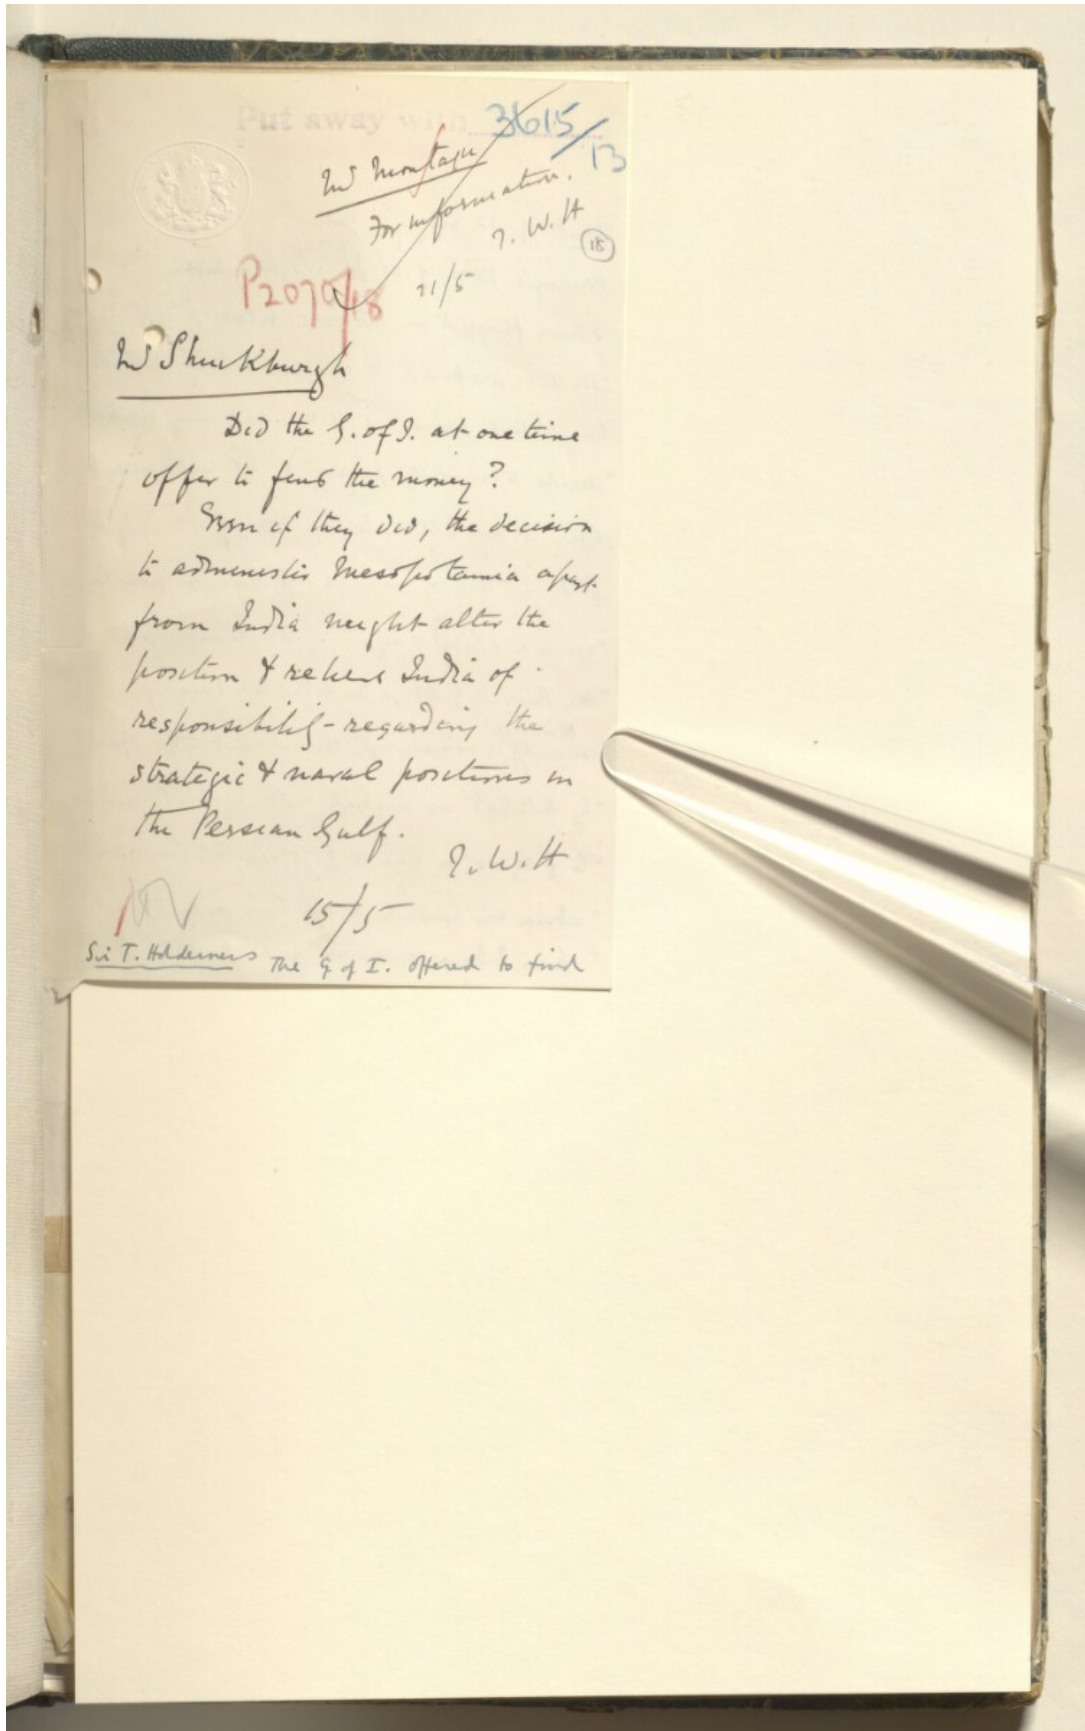 Put away with
3615/13
Mr Montagu
For information.
T. W. H
18
21/5
P2070/18
Mr Shuckburgh
Did the G. of I. at one time
offer to find the money?
Even if they did, the decision
to administer Mesopotamia apart
from India might alter the
position & relieve India of
responsibility regarding the
strategic & naval positions in
the Persian Gulf.
T. W. H
15/5
Sir T. Holderness The G of I. offered to find